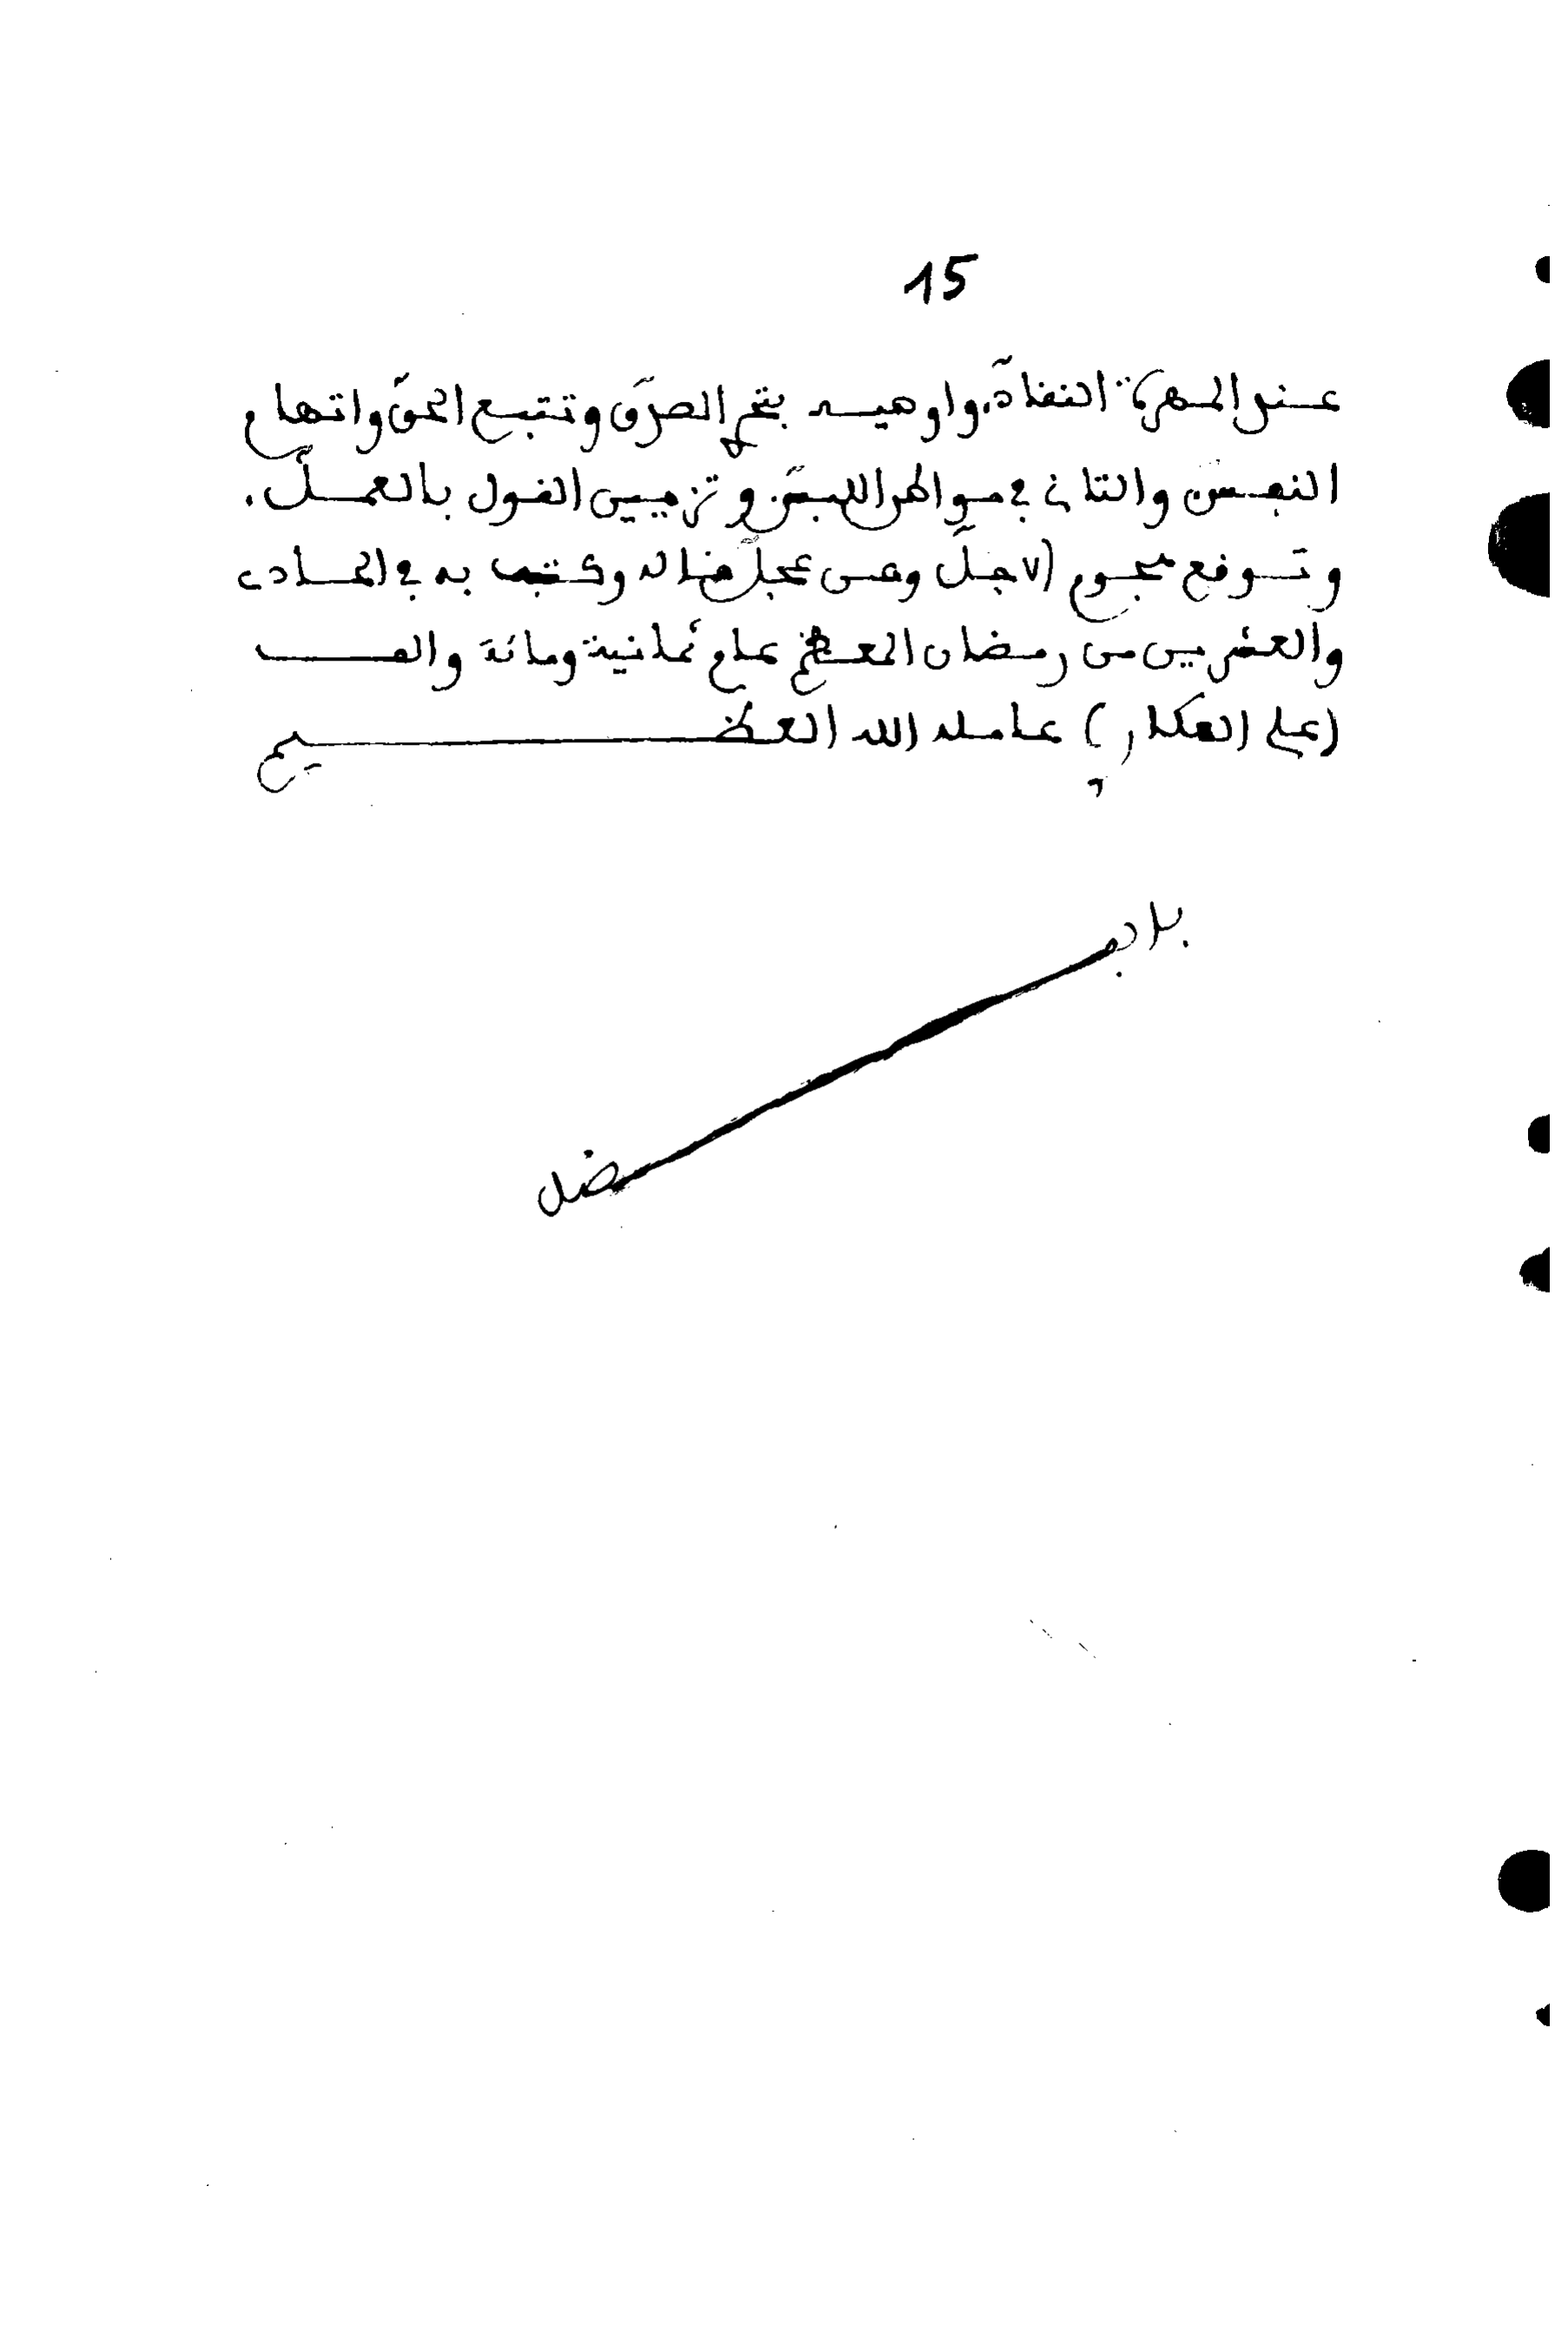 15
عند المهرة النقاد. واوصيه بتحري الصدق وتتبع الحق واتهام
النفس والتاني في مواطن اللبس وتزيين القول بالعمل.
وتوقع هجوم الاجل وعن عجل قال وكتب به في الحادي
والعشرين من رمضان المعظم عام ثمانية ومائة والف
(علي العكاري) عامله الله العظيم
بلا فضل